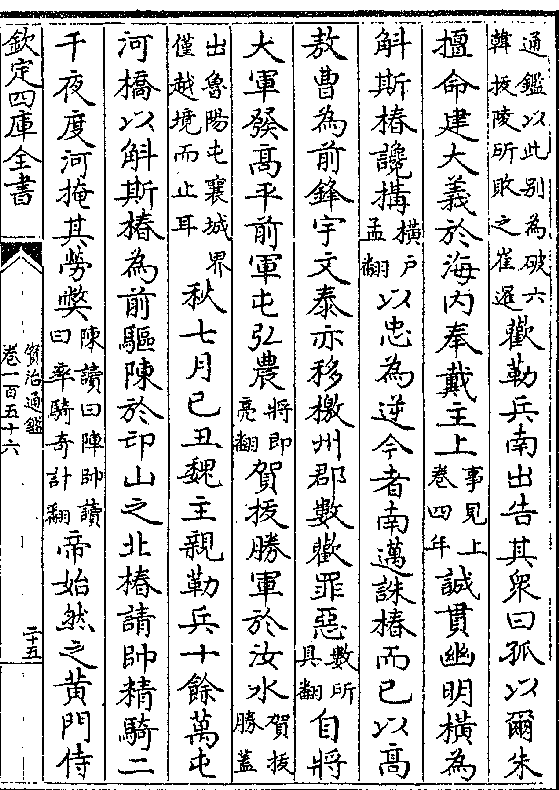 通鑑以此别為破六
韓拔陵所敗之崔暹歡勒兵南出告其衆曰孤以爾朱
擅命建大義於海内奉戴主上事見上
卷四年誠貫幽明橫為
斛斯椿讒搆橫户
孟翻以忠為逆今者南邁誅椿而已以髙
敖曹為前鋒宇文泰亦移檄州郡數歡罪惡數所
具翻自將
大軍發髙平前軍屯弘農將即
亮翻賀拔勝軍於汝水賀拔
勝蓋
出魯陽屯襄城界
僅越境而止耳秋七月己丑魏主親勒兵十餘萬屯
河橋以斛斯椿為前驅陳於邙山之北椿請帥精騎二
千夜度河掩其勞弊陳讀曰陣帥讀
曰率騎奇計翻帝始然之黄門侍
欽定四庫全書
資治通鑑
卷一百五十六
二十五